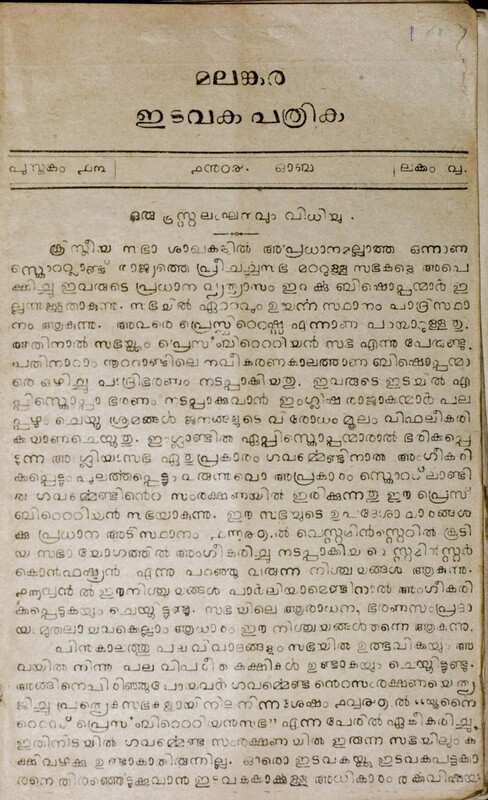 മലങ്കര
ഇടവക പത്രിക
പുസ്തകം ൧൩
ലക്കം ൮.
ഒരു ട്രസ്റ്റുലംഘനവും വിധിയും.
ക്രിസ്തീയ സഭാ ശാഖകളിൽ അപ്രധാനമല്ലാത്ത ഒന്നാണ
സ്കൊറ്റ്ലാണ്ട് രാജ്യത്തെ പ്രീചർച്ചസഭ മററുള്ള സഭകളെ അപെ
ക്ഷിച്ചു ഇവരുടെ പ്രധാന വ്യത്യാസം ഇവൎക്കു ബിഷൊപ്പന്മാർ ഇ
ല്ലെന്നുള്ളതാകുന്നു. സഭയിൽ ഏററവും ഉയൎന്ന സ്ഥാനം പാദ്രിസ്ഥാ
നം ആകുന്നു. അവരെ പ്രെസ്ബിറെറർ എന്നാണ പറയാറുള്ളതു.
അതിനാൽ സഭയ്ക്കും പ്രെസ്ബിറെററിയൻ സഭ എന്നു പേരുണ്ടു.
പതിനാറാം നൂററാണ്ടിലെ നവീകരണകാലത്താണ ബിഷൊപ്പന്മാ
രെ ഒഴിച്ചു പാദ്രിഭരണം നടപ്പാക്കിയതു. ഇവരുടെ ഇടയിൽ എ
പ്പിസ്കൊപ്പാ ഭരണം നടപ്പാക്കുവാൻ ഇംഗ്ലീഷ രാജാക്കന്മാർ പല
പ്പഴും ചെയ്ത ശ്രമങ്ങൾ ജനങ്ങളുടെ വിരോധം മൂലം വിഫലീകരി
ക്കയാണചെയ്തതു. ഇംഗ്ലാണ്ടിൽ എപ്പിസ്കൊപ്പന്മാരാൽ ഭരിക്കപ്പെ
ടുന്ന അംഗ്ലിയസഭ ഏതുപ്രകാരം ഗവൎമ്മെണ്ടിനാൽ അംഗീകരി
ക്കപ്പെട്ടും പുലൎത്തപ്പെട്ടും വരുന്നുവൊ അപ്രകാരം സ്കൊററ്ലാണ്ടി
ൽ ഗവൎമ്മെണ്ടിൻെറ സംരക്ഷണയിൽ ഇരിക്കുന്നതു ഈ പ്രെസ്
ബിറെററിയൻ സഭയാകുന്നു. ഈ സഭയുടെ ഉപദേശാചാരങ്ങൾ
ക്കു പ്രധാന അടിസ്ഥാനം ൽ വെസ്റ്റുമിൻസ്റ്ററിൽ കൂടി
യ സഭായോഗത്തിൽ അംഗീകരിച്ചു നടപ്പാക്കിയ വെസ്റ്റമിൻസ്റ്റർ
കൊൻഫഷ്യൻ എന്നു പറഞ്ഞു വരുന്ന നിശ്ചയങ്ങൾ ആകുന്നു.
ൽ ഈ നിശ്ചയങ്ങൾ പാർലിയാമെണ്ടിനാൽ അംഗീകരി
ക്കപ്പെടുകയും ചെയ്തിട്ടുണ്ടു. സഭയിലെ ആരാധന, ഭരണസംപ്രദാ
യം മുതലായവകെല്ലാം ആധാരം ഈ നിശ്ചയങ്ങൾതന്നെ ആകുന്നു.
പിൻകാലത്തു പല വിവാദങ്ങളും സഭയിൽ ഉത്ഭവിക്കയും അ
വയിൽ നിന്നു പല വിപരീതകക്ഷികൾ ഉണ്ടാകയും ചെയ്തിട്ടുണ്ടു.
അങ്ങിനെപിരിഞ്ഞുപോയവർ ഗവൎമ്മെണ്ടിൻെറസംരക്ഷണയെത്യ
ജിച്ചു പ്രത്യെകസഭകളായി നിലനിന്നശേഷം ൽ “യുനൈ
റെറഡ് പ്രെസ്ബിറെററിയൻസഭ” എന്ന പേരിൽ ഏകീകരിച്ചു.
ഇതിനിടയിൽ ഗവൎമ്മെണ്ടു സംരക്ഷണയിൽ ഇരുന്ന സഭയിലും ക
ക്ഷിവഴക്കു ഉണ്ടാകാതിരുന്നില്ല. ഓരൊ ഇടവകയ്ക്കും ഇടവകപട്ടക്കാ
രനെ തിരഞ്ഞെടുക്കുവാൻ ഇടവകകാൎക്കുള്ള അധികാരം